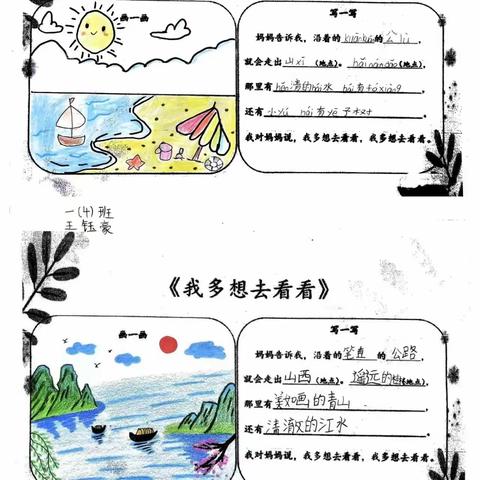 画一画
写一写
妈妈告诉我，沿着的 的公lù
就会走出山xī（地点）。 （地点），
那里有 hěn 清的hǎi水 hái有
还有小yú hái有yē子树
我对妈妈说，我多想去看看，我多想去看看。
一(4)班
王钰豪
《我多想去看看》
画一画
写一写
妈妈告诉我，沿着的笔直的公路，
就会走出山西（地点）。遥远的桂林（地点），
那里有如画的青山，
还有清澈的江水。
我对妈妈说，我多想去看看，我多想去看看。